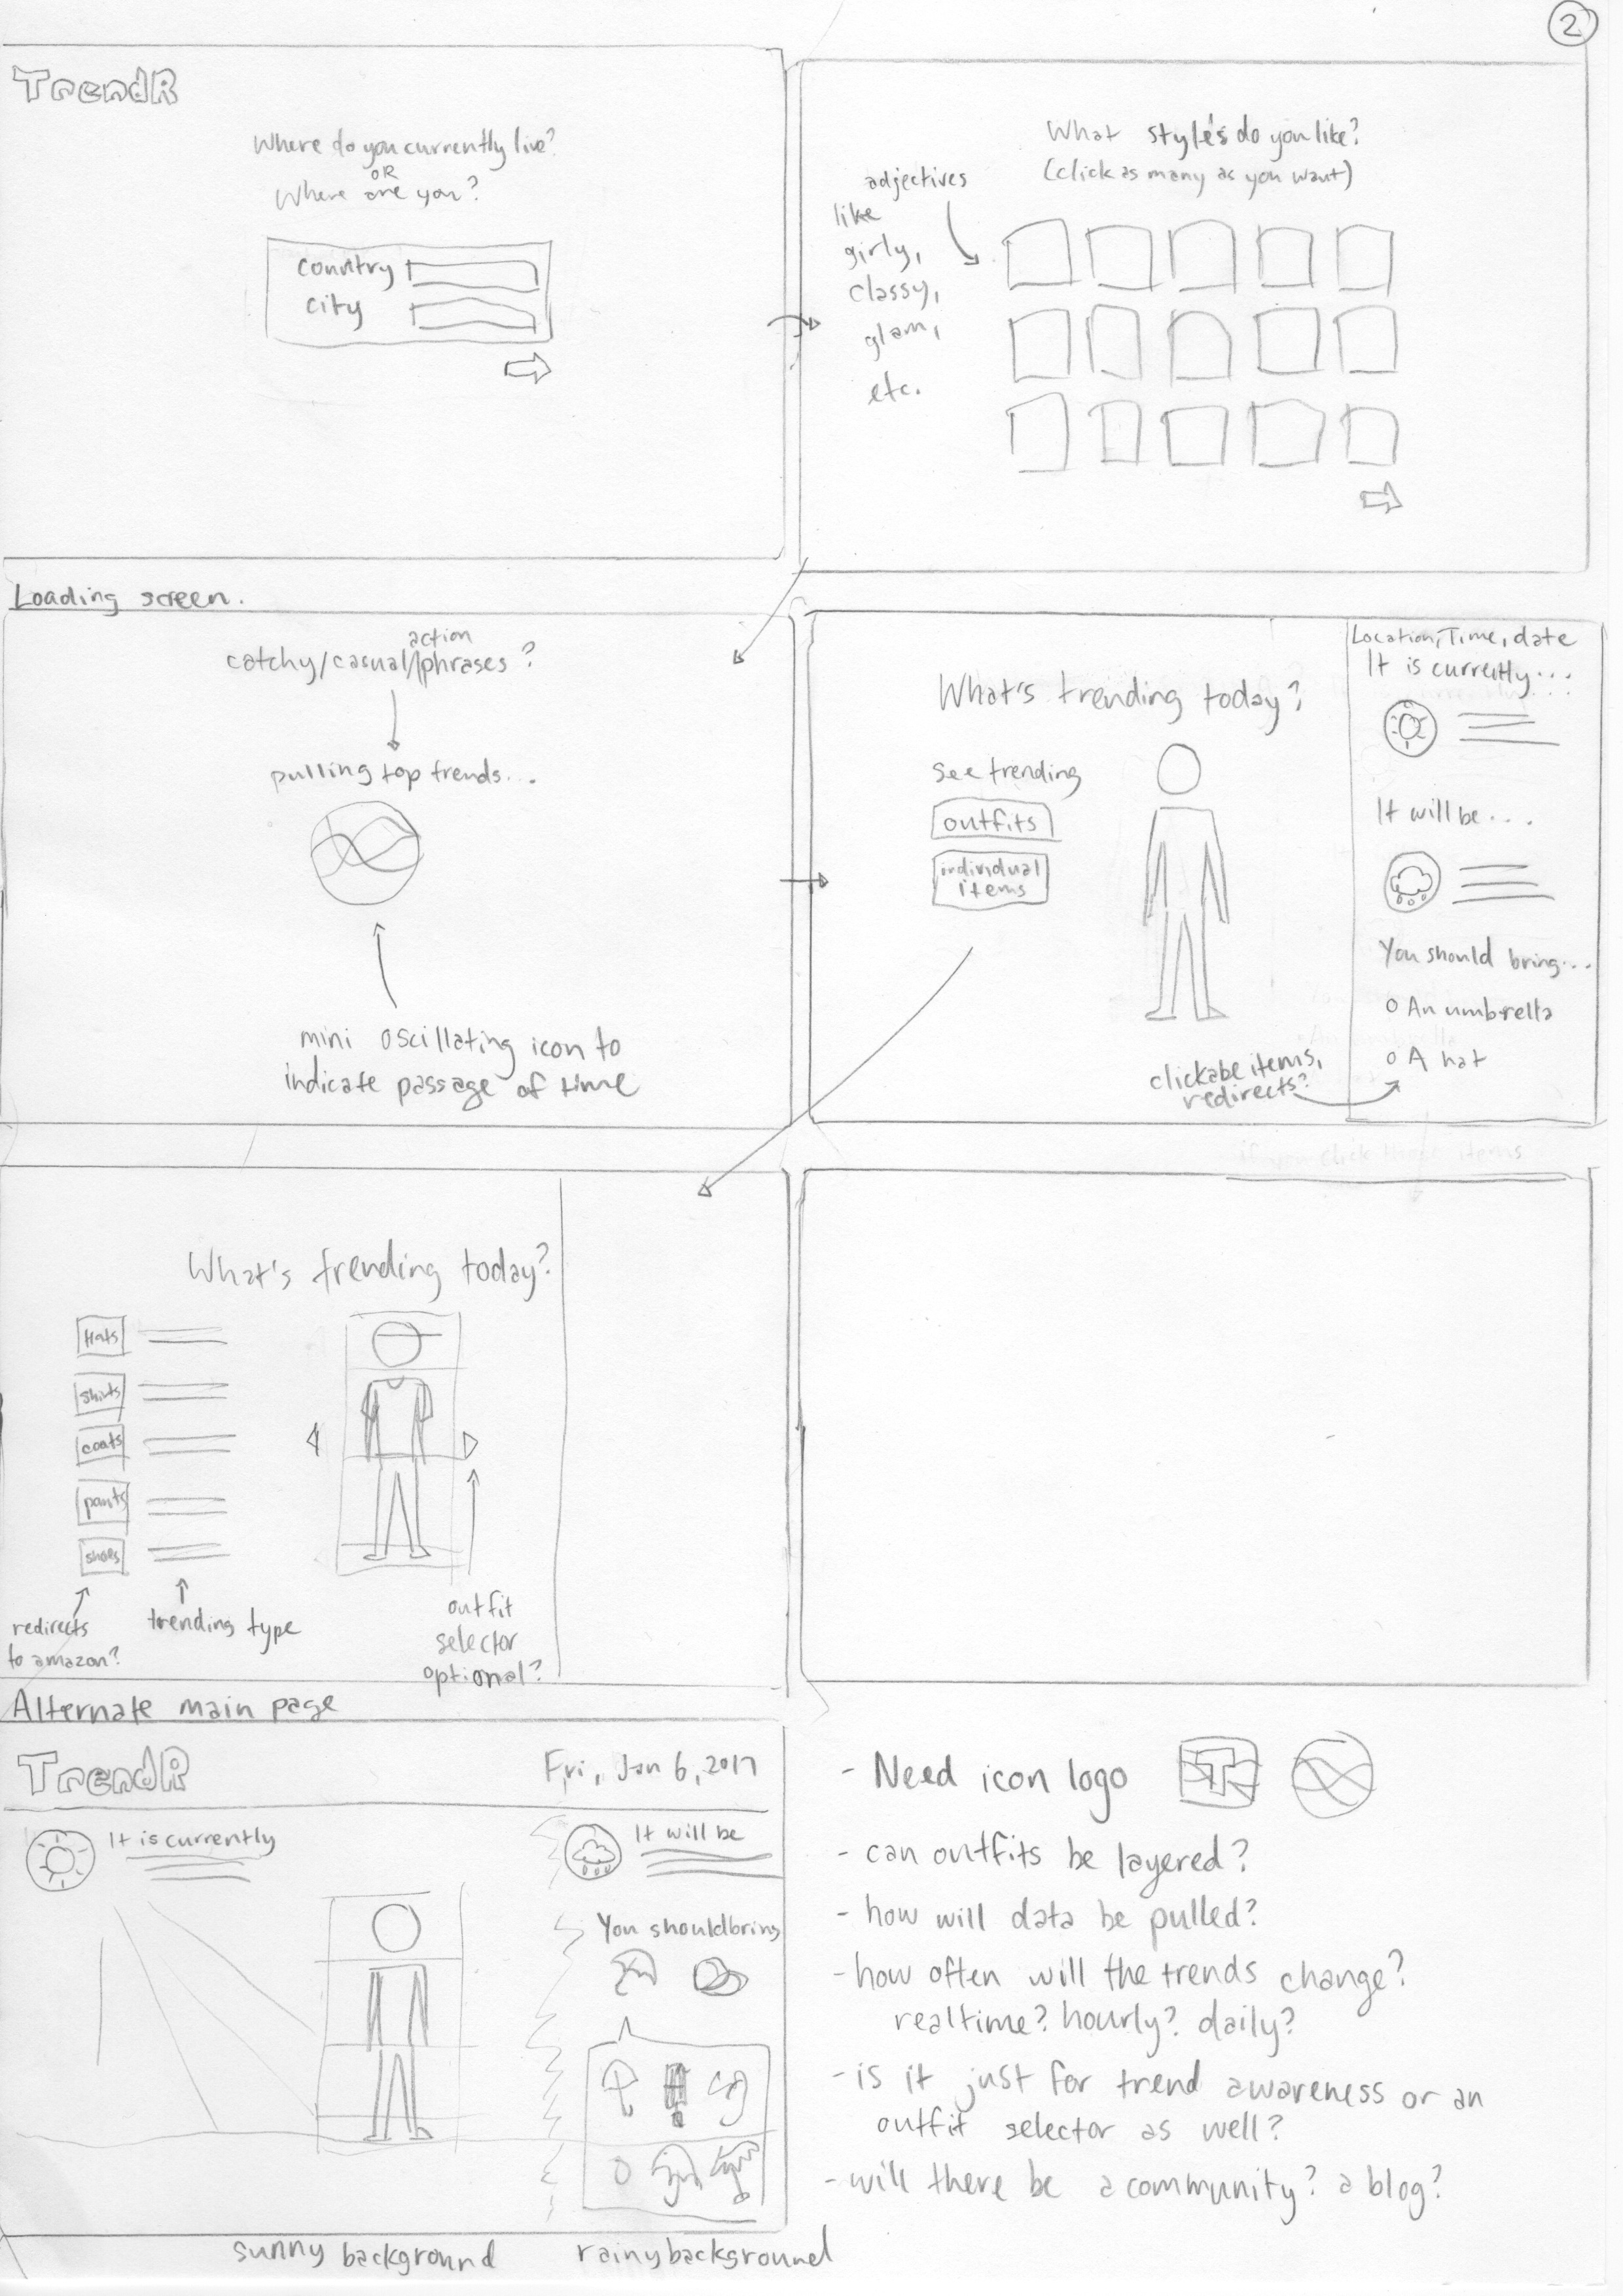 2
TrendR
Where do you currently live?
OR
Where are you?
country
city
What styles do you like?
(click as many as you want)
adjectives
like
girly,
classy,
glam,
etc.
Loading screen.
catchy/casual/phrases?
action
pulling top trends...
mini oscillating icon to
indicate passage of time
What's trending today?
See trending
outfits
individual
items
clickable items,
redirects?
Location, Time, date
It is currently...
It will be...
You should bring...
o An umbrella
o A hat
What's trending today?
Hats
shirts
coats
pants
shoes
redirects
to amazon?
trending type
outfit
selector
optional?
Alternate main page
TrendR
Fri, Jan 6, 2017
It is currently
It will be
You should bring
sunny background
rainy background
- Need icon logo
- can outfits be layered?
- how will data be pulled?
- how often will the trends change?
realtime? hourly? daily?
- is it just for trend awareness or an
outfit selector as well?
- will there be a community? a blog?